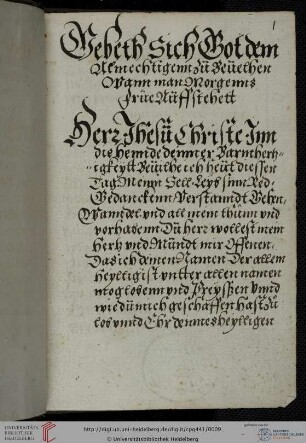 1
Gebeth Sich Got dem
Almechtigenn zu Beuelhen
Wann man Morgenns
Frue Auffstehett
Herr Jhesu Christe Inn
die Hennde deiner Barmhertz-
igkeytt Beuilhe ich heut diessen
Tag Meynn Seel Leyb sinn Red
Gedanckenn Verstanndt Leben
Wanndel vnd all mein thunn vnd
vorhabenn Du herr wollest mein
hertz vnd Mundt mir Offenen
Das ich deinen Namen Der allein
heyllig ist vntter allen namen
mög lobenn vnd Preyssen vnnd
wie du mich geschaffen hast zu
lob vnnd Ehr deines heylligen
http://digi.ub.uni-heidelberg.de/diglit/cpg441/0009
© Universitätsbibliothek Heidelberg